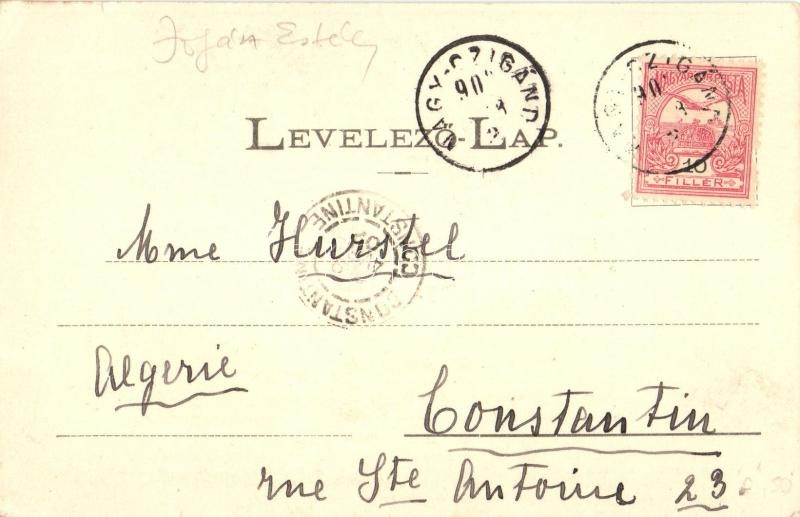 NAGY-CZIGÁND
90
MAGYAR POSTA
10
FILLÉR
LEVELEZŐ-LAP.
CONSTANTINE
CONSTANTINE
Mme Hurstel
Algerie
Constantin
rue Ste Antoine 23